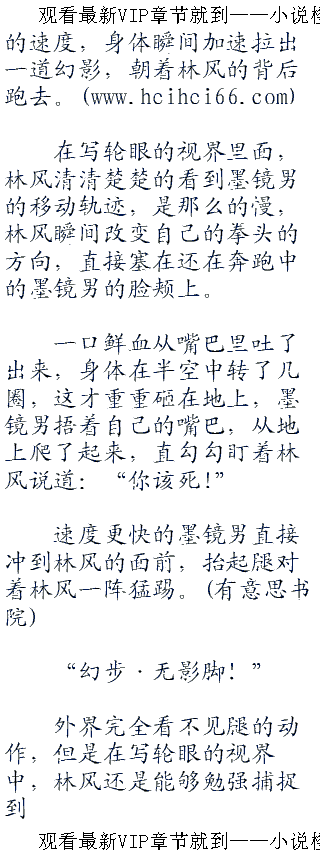 观看最新VIP章节就到——小说
的速度，身体瞬间加速拉出
一道幻影，朝着林风的背后
跑去。(www.hcihci66.com)
在写轮眼的视界里面，
林风清清楚楚的看到墨镜男
的移动轨迹，是那么的慢，
林风瞬间改变自己的拳头的
方向，直接塞在还在奔跑中
的墨镜男的脸颊上。
一口鲜血从嘴巴里吐了
出来，身体在半空中转了几
圈，这才重重砸在地上，墨
镜男捂着自己的嘴巴，从地
上爬了起来，直勾勾盯着林
风说道：“你该死!”
速度更快的墨镜男直接
冲到林风的面前，抬起腿对
着林风一阵猛踢。(有意思书
院)
“幻步·无影脚！”
外界完全看不见腿的动
作，但是在写轮眼的视界
中，林风还是能够勉强捕捉
到
观看最新VIP章节就到——小说